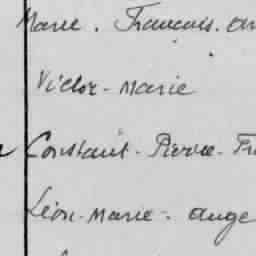 Marie. Francois. an
Victor - Marie
Constant - Pierre - Fr
Léon - Marie - ange